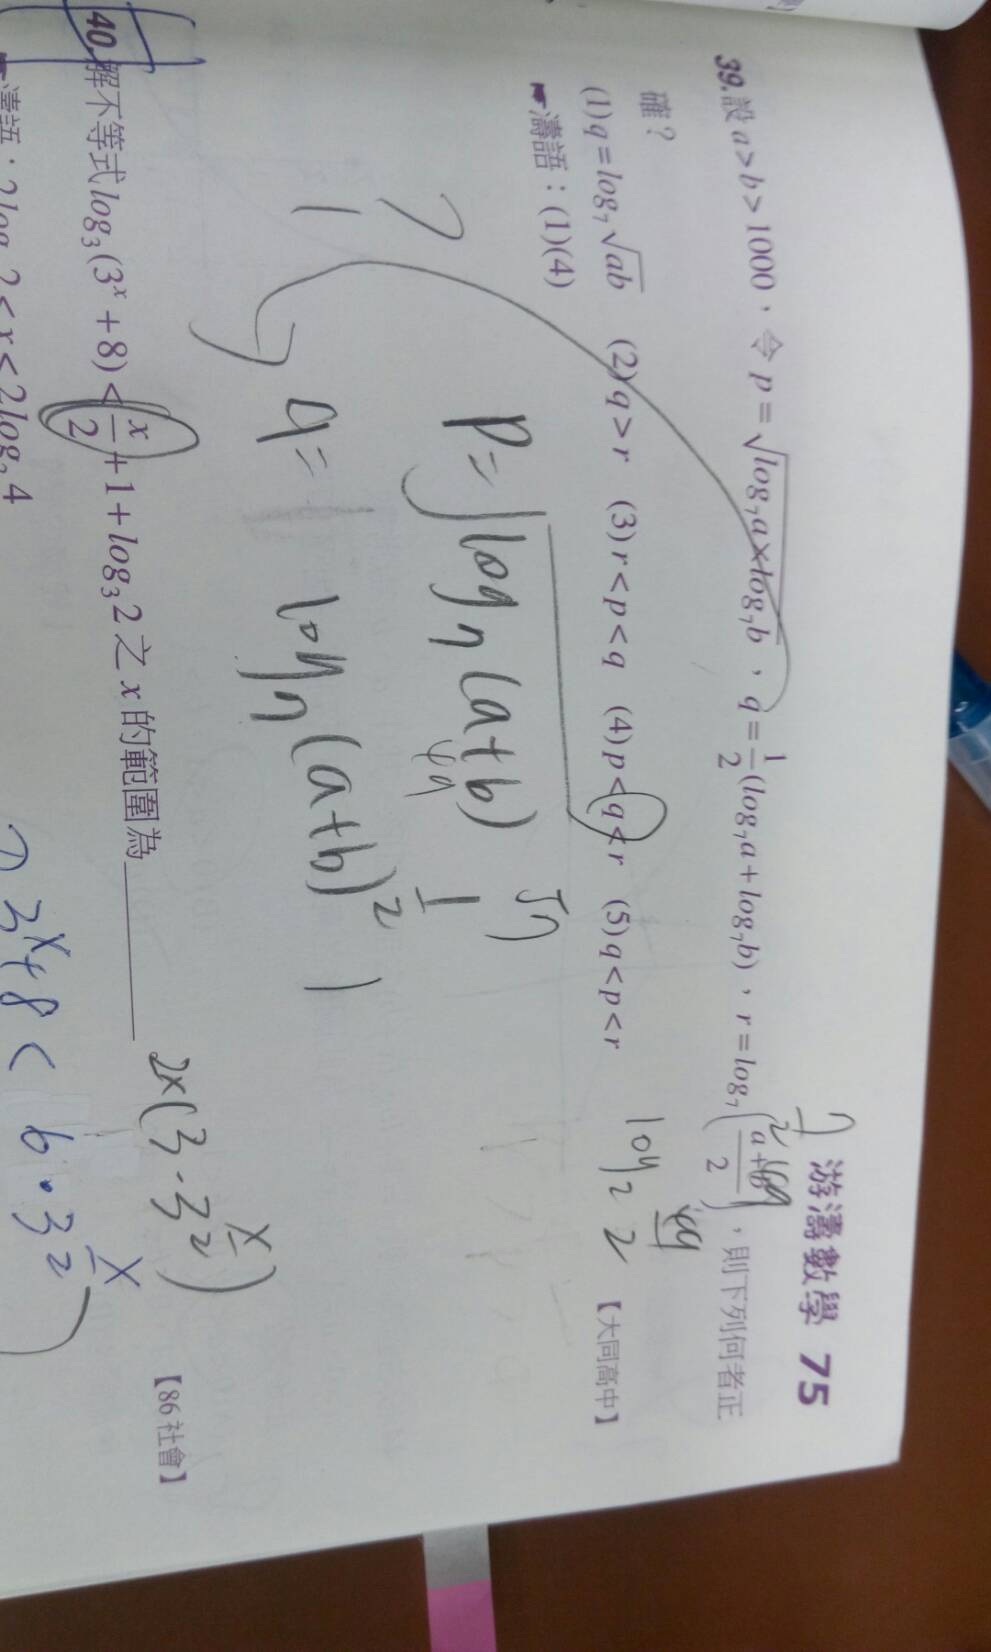 游濤數學 75
39. 設 a > b > 1000，令 p = √(log₇a × log₇b)，q = 1/2(log₇a + log₇b)，r = log₇(a+b/2)，則下列何者正
確？
(1) q = log₇√ab (2) q > r (3) r < p < q (4) p < q < r (5) q < p < r 【大同高中】
☛濤語：(1)(4)
p = √log₇(a+b)
q = log₇(a+b)² 1
log₂ 2
40. 解不等式 log₃(3ˣ + 8) < x/2 + 1 + log₃2 之 x 的範圍為 ______ 【86 社會】
2x(3·3^(x/2))
3ˣ+8 < 6·3^(x/2)
☛濤語：2log₃2 < x < 2log₃4